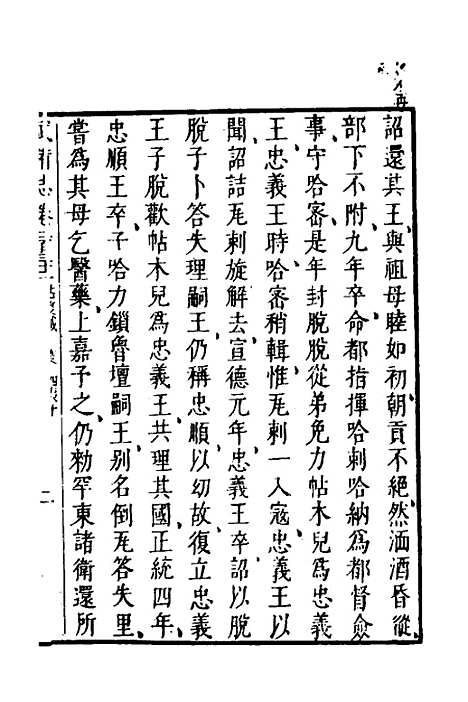 詔還其王與祖母睦如初朝貢不絕然湎酒昏從
部下不附九年卒命都指揮哈剌哈納爲都督僉
事守哈密是年封脫脫從弟免力帖木兒爲忠義
王忠義王時哈密稍輯惟瓦剌一入寇忠義王以
聞詔詰瓦剌旋解去宣德元年忠義王卒詔以脫
脫子卜答失理嗣王仍稱忠順以幼故復立忠義
王子脫歡帖木兒爲忠義王共理其國正統四年
忠順王卒子哈力鎖魯壇嗣王别名倒瓦答失里
嘗爲其母乞醫藥上嘉予之仍勑罕東諸衛還所
武備志
二